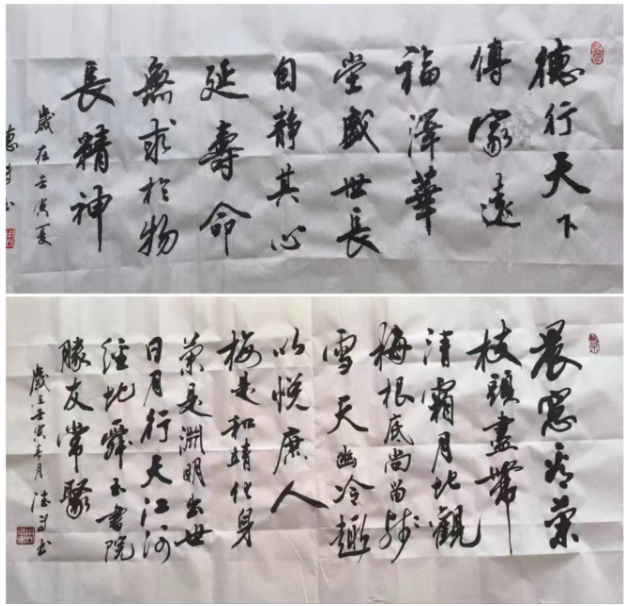 德行天下
傳家遠
福澤華
堂盛世長
自静其心
延壽命
無求於物
長精神
歲在壬寅夏
晨窓看菊
枝頭盡帶
清霜月地觀
梅根底尚留残
雪天幽冷趣
以悦庶人
梅是和靖化身
菊是淵明出世
日月行天江河
經地舜玉書院
勝友常聚
歲在壬寅春月